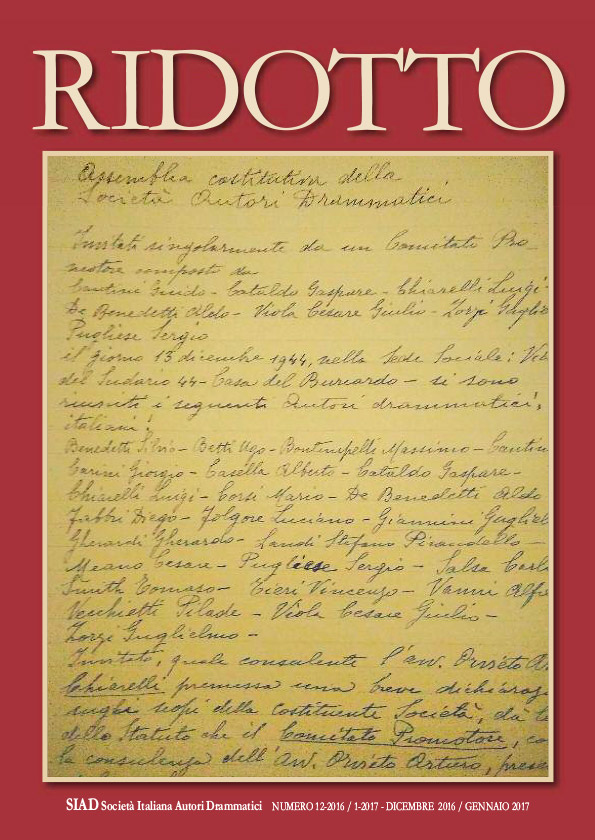 RIDOTTO
Assemblea costitutiva della
Società Autori Drammatici
Invitati singolarmente da un Comitato Pro-
motore composto da
Cantini Guido - Cataldo Gaspare - Chiarelli Luigi -
De Benedetti Aldo - Viola Cesare Giulio - Zorzi Guglie
Pugliese Sergio
il giorno 13 dicembre 1944, nella Sede Sociale: Via
del Sudario 44 - Casa del Burcardo - si sono
riuniti i seguenti Autori drammatici,
italiani:
Benedetti Silvio - Betti Ugo - Bontempelli Massimo - Cantin
Carini Giorgio - Casella Alberto - Cataldo Gaspare -
Chiarelli Luigi - Corsi Mario - De Benedetti Aldo
Fabbri Diego - Folgore Luciano - Giannini Gugliel
Gherardi Gherardo - Landi Stefano Pirandello -
Meano Cesare - Pugliese Sergio - Salsa Carlo
Smith Tomaso - Tieri Vincenzo - Vanni Alfre
Vecchietti Pilade - Viola Cesare Giulio -
Zorzi Guglielmo -
Invitato, quale consulente l'avv. Orvieto Ar
Chiarelli premessa una breve dichiaraz
sugli scopi della costituente Società, dà le
dello Statuto che il Comitato Promotore, co
la consulenza dell'Avv. Orvieto Arturo, prese
SIAD Società Italiana Autori Drammatici NUMERO 12-2016 / 1-2017 - DICEMBRE 2016 / GENNAIO 2017